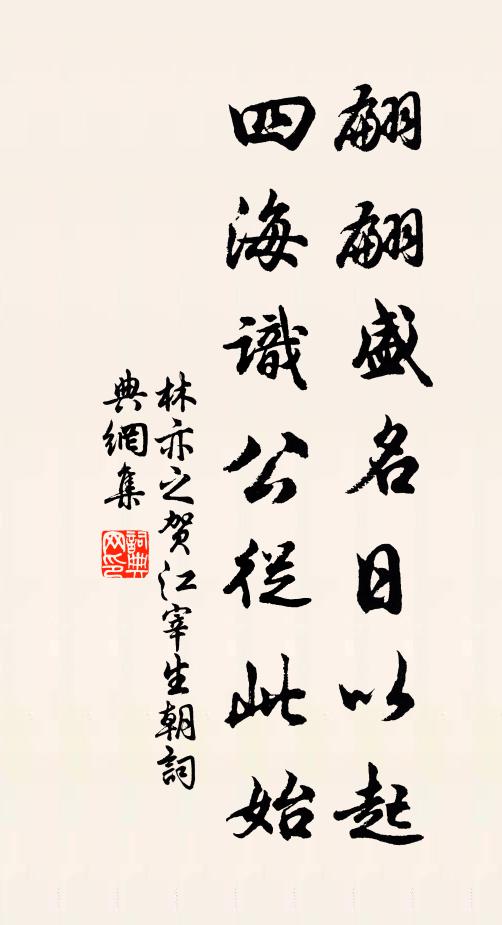 翩翩盛名日以起
四海識公從此始
林亦之賀江宰生朝詞
典網集
詞典网印